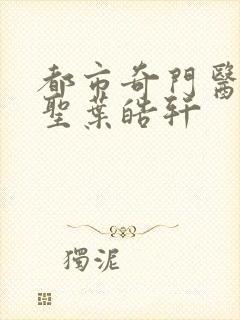 都市奇門醫
聖葉皓軒
獨泥